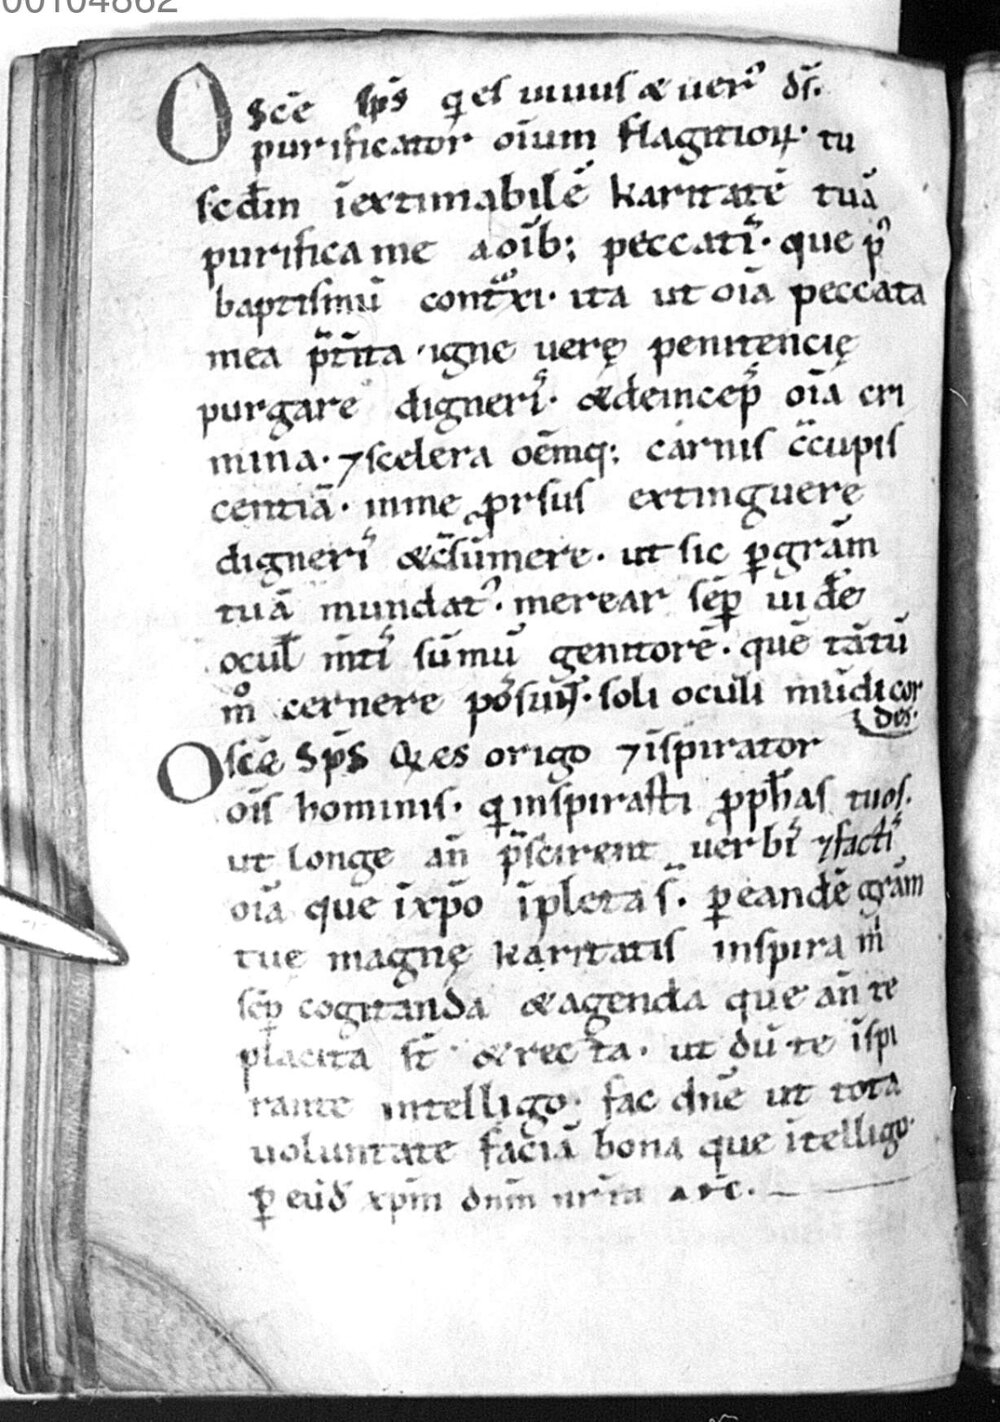 00104862
O sc̄e sp̄s q̇ es uiuus & uer᾽ ds̄.
purificator oīum flagitioꝝ. tu
scd̄m īextimabilē karitatē tuā
purifica me a oīb; peccatis. que p᾽
baptismū contͣxi. ita ut oīa peccata
mea p̄t̄ita igne uerę penitencię
purgare digneris. & deincep̄ oīa cri
mina. ⁊ scelera oēmq; carnis c̄cupis
centiā. in me ꝓrsus extinguere
digneris & c̄sūmere. ut sic ꝑ grām
tuā mundat᾽. merear sēꝑ uidē
ocul̄ m̄tis sūmū genitorē. quē tātū
mͦ cernere possuns. soli oculi mūdi cor
des.
O sc̄e Sp̄s Q es origo ⁊ īspirator
oīs hominis. q̇ inspirasti ꝓph̄as tuos.
ut longe an̄ p̄scirent uerbis ⁊ factis
oīa que ī xp̄o īpleta s̄. ꝑ eandē grām
tuę magnę karitatis inspira m̄
sēꝑ cogitanda & agenda que an̄ te
placita st̄ & recta. ut dū te īspi
rante intelligo. fac dn̄e ut tota
uoluntate faciā bona que ītelligo.
ꝑ eūd̄ xp̄m dn̄m nr̄m